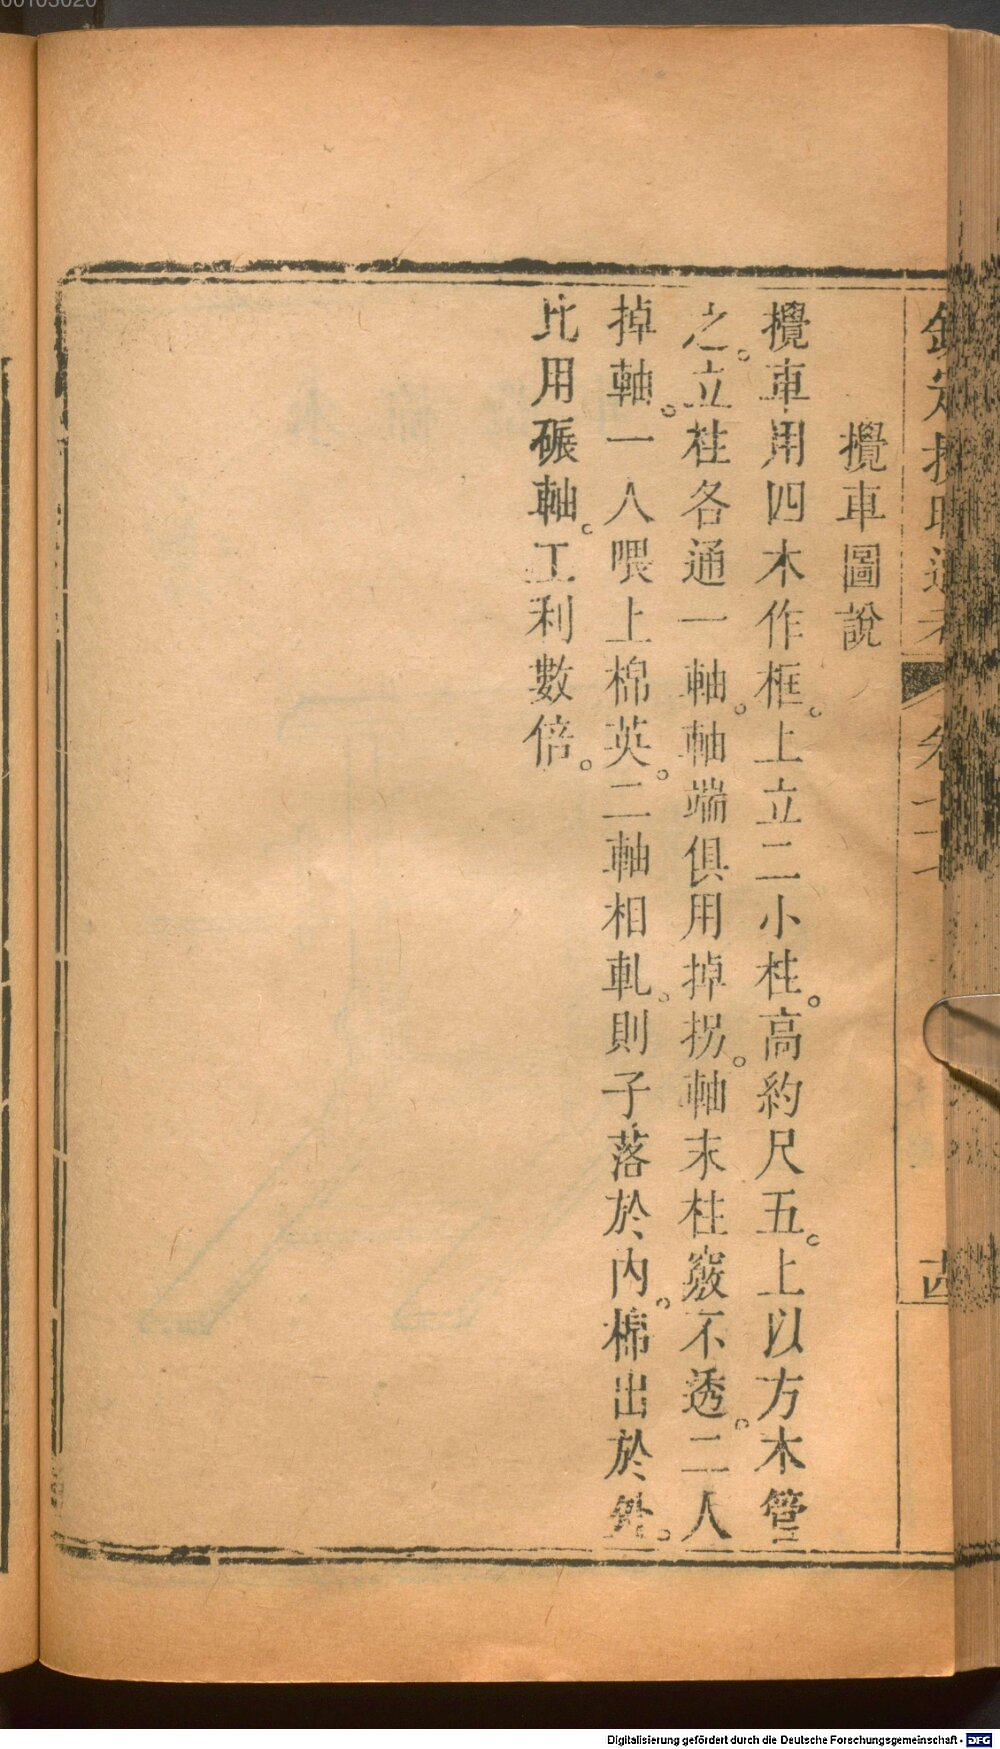 攪車圖說
攪車用四木作框。上立二小柱。高約尺五。上以方木管
之。立柱各通一軸。軸端俱用掉拐。軸末柱竅不透。二人
掉軸。一人喂上棉英。二軸相軋。則子落於內。棉出於外。
比用碾軸。工利數倍。
欽定授時通考
卷
Digitalisierung gefördert durch die Deutsche Forschungsgemeinschaft - DFG